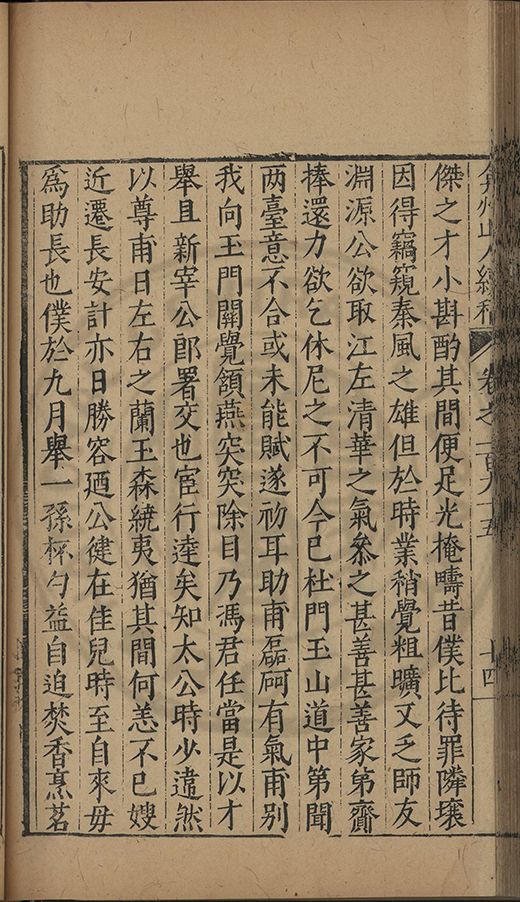 弇州山人續稿 卷之一百九十五 十四
傑之才小斟酌其間便足光掩疇昔僕比待罪隣壤
因得竊窺秦風之雄但於時業稍覺粗曠又乏師友
淵源公欲取江左清華之氣參之甚善甚善家第齎
捧還力欲乞休尼之不可今已杜門玉山道中第聞
兩臺意不合或未能賦遂初耳助甫磊砢有氣甫別
我向玉門關覺頷燕突突除目乃馮君任當是以才
舉且新宰公郎署交也宦行達矣知太公時少違然
以尊甫日左右之蘭玉森繞夷猶其間何恙不已嫂
近遷長安計亦日勝容廼公健在佳兒時至自來毋
為助長也僕於九月舉一孫杯勺益自追焚香烹茗